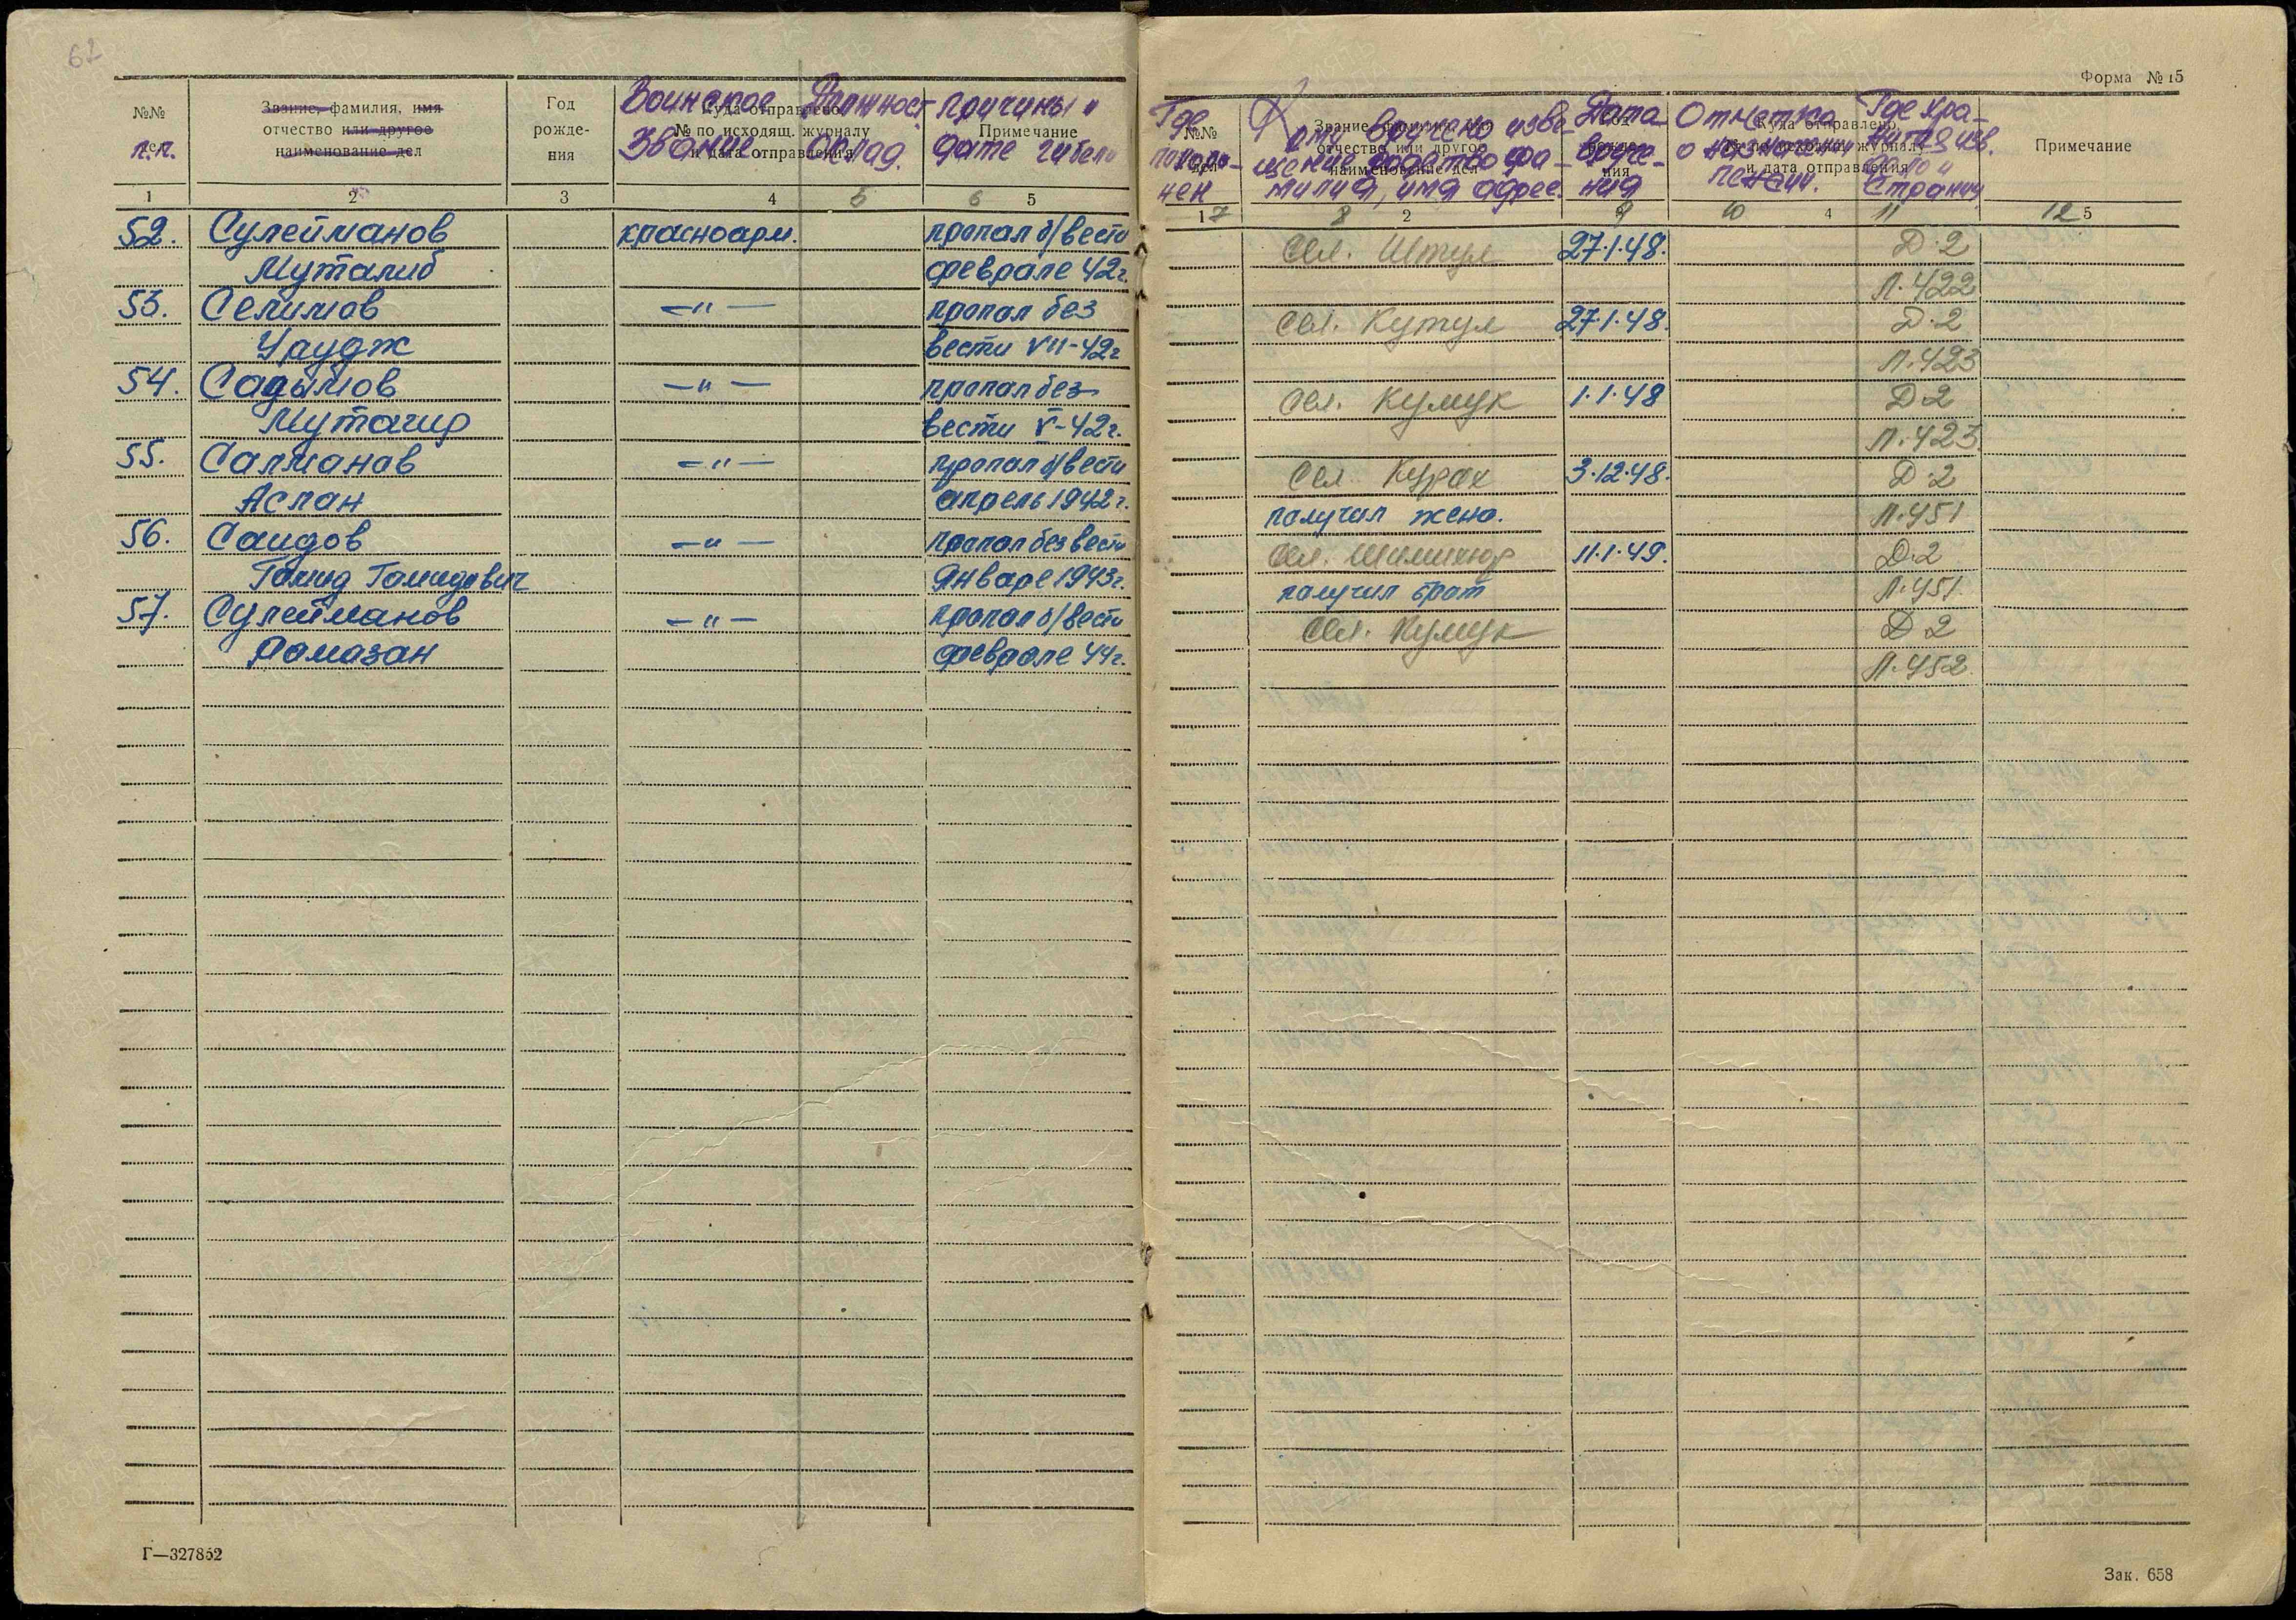 62
Форма № 15
№№ дел п.п.
Звание, фамилия, имя отчество или другое наименование дел
Год рожде- ния
Куда отправлено № по исходящ. журналу и дата отправления
Воинское Звание
Должност. оклад.
Примечание
Причины и дата гибели
1 2 3 4 5 6 5
52. Сулейманов красноарм. пропал б/вести
Муталиб феврале 42г.
53. Селимов —"— пропал без
Урудж вести VII-42г
54. Садымов —"— пропал без
вести V-42г.
55. Салманов —"— пропал б/вести
Аслан апрель 1942г.
56. Саидов —"— пропал без вести
Гамид Гамидович Январе 1943г.
57. Сулейманов —"— пропал б/вести
Рамазан феврале 44г.
Г—327852
№№ дел
Где похоро- нен
Звание, фамилия, имя отчество или другое наименование дел
вручено изве- щение родство фа- милия, имя адрес.
Год рожде- ния
Дата вруче- ния
Куда отправлено № по исходящ. журналу и дата отправления
Отметка о назначении пенсии.
Где хра- нится изв. дело и страниц
Примечание
1 7 8 2 9 10 4 11 12 5
Сел. Штул 27.1.48. Д.2
Л.422
Сел. Кутул 27.1.48. Д.2
Л.423
Сел. Кумук 1.1.48 Д.2
Л.423
Сел. Курах 3.12.48. Д.2
получил жена. Л.451
Сел. 11.1.49. Д.2
получил брат Л.451.
Сел. Кумук Д 2
Л.452.
Зак. 658